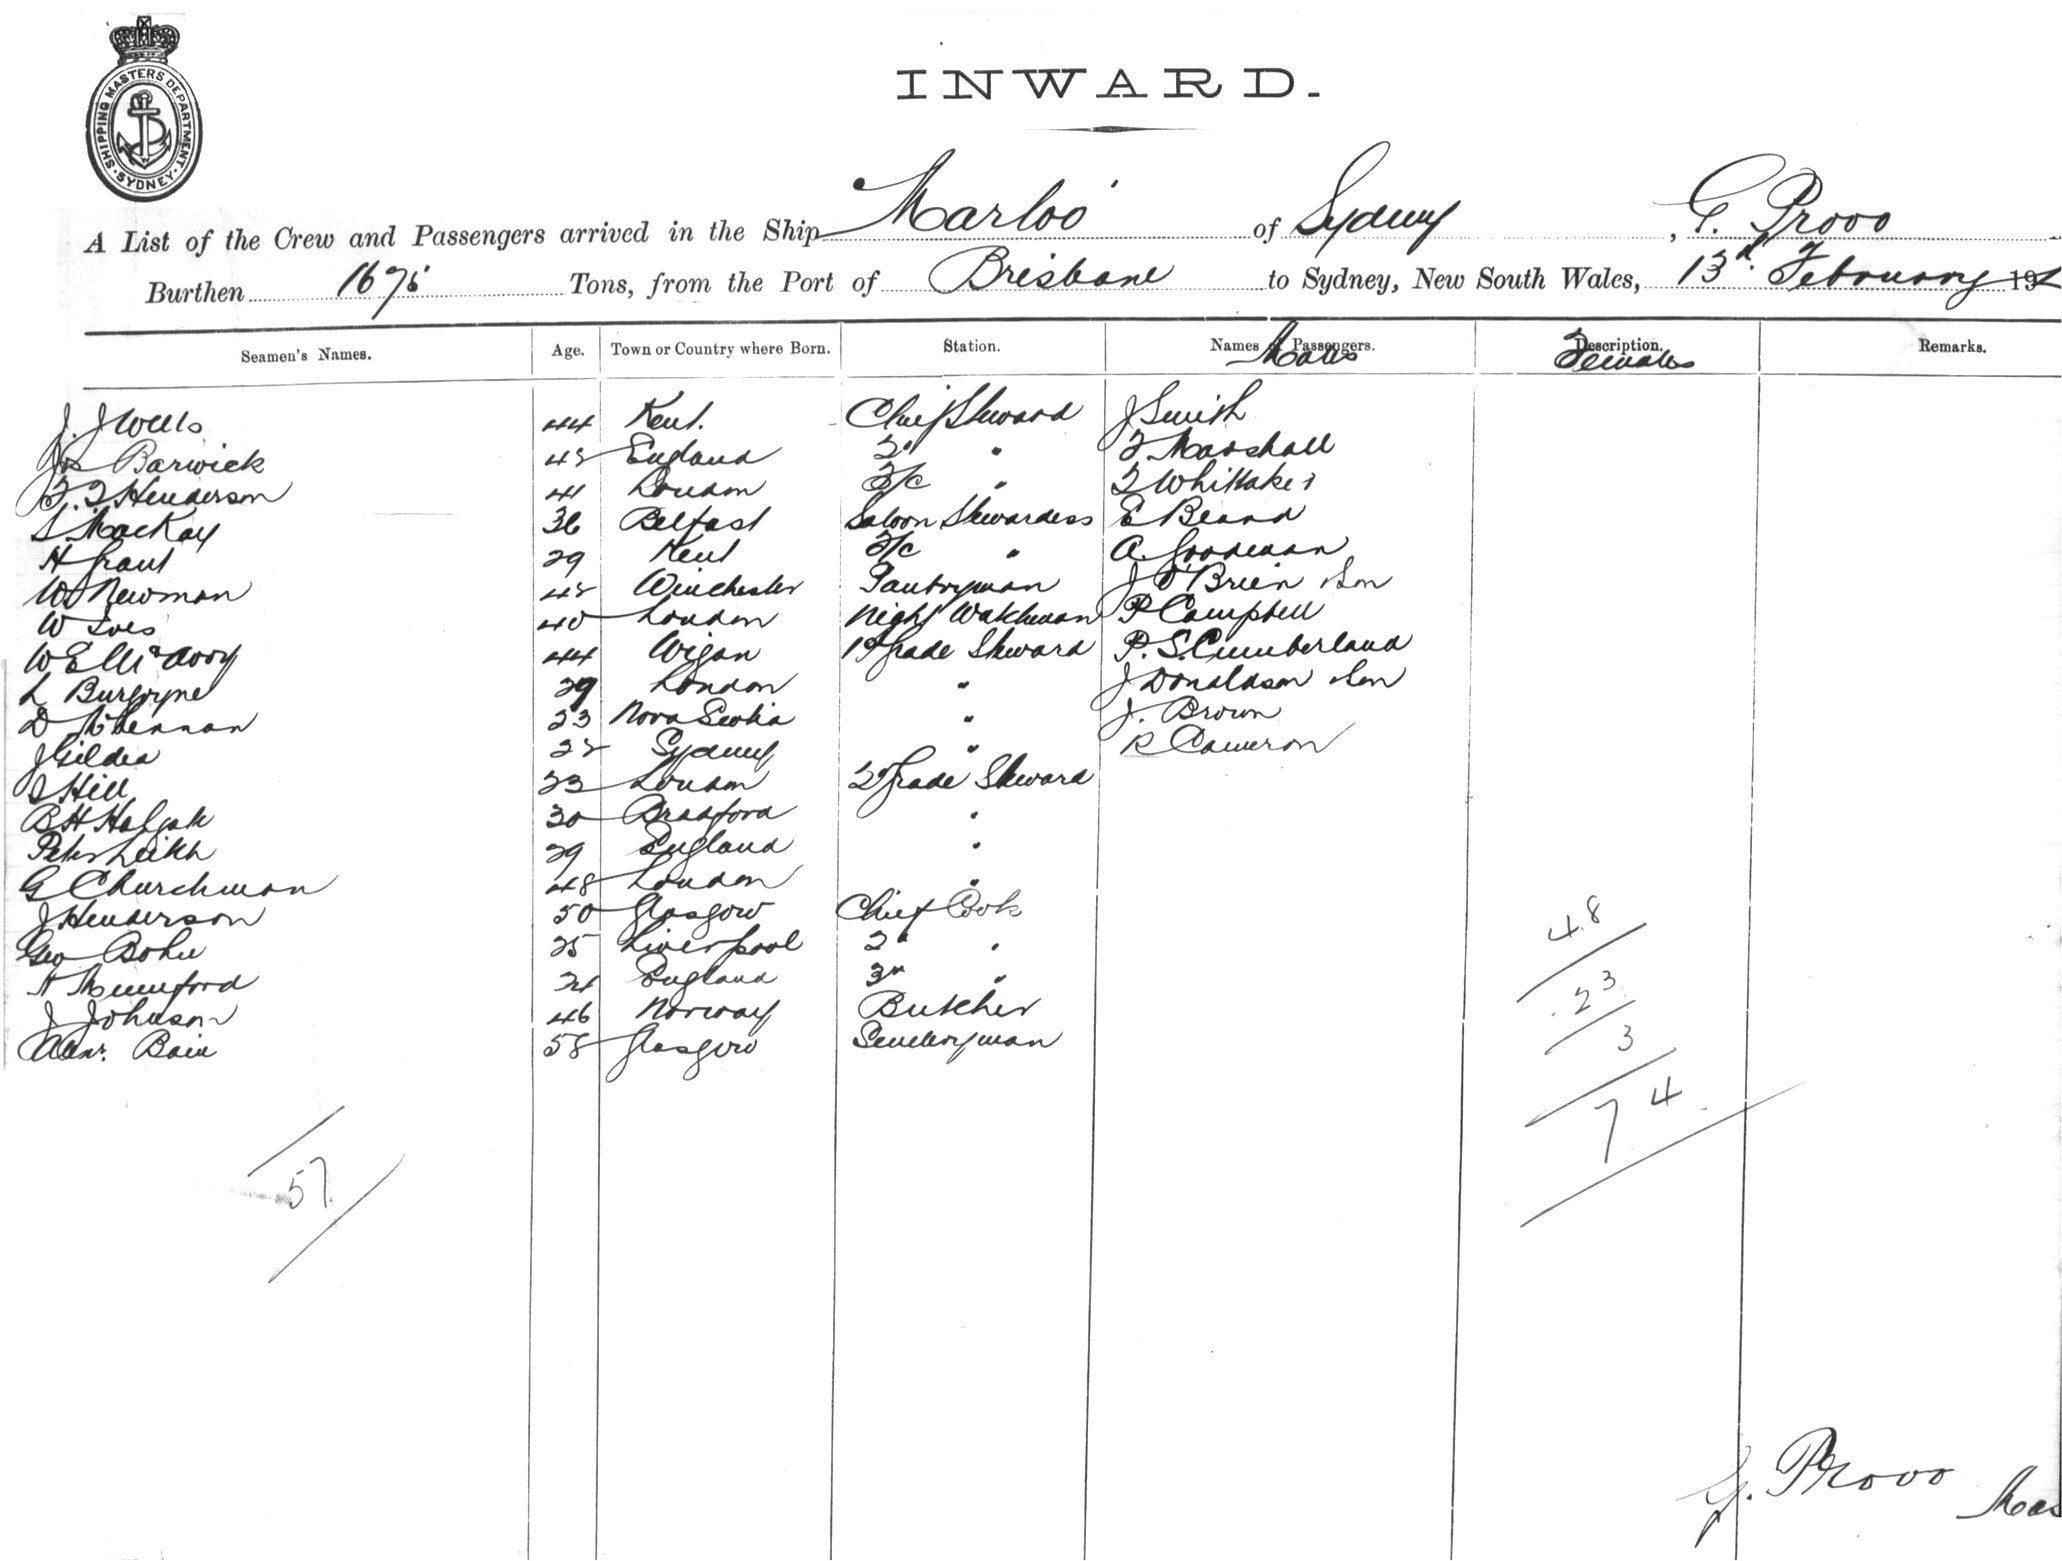 SHIPPING MASTERS DEPARTMENT
SYDNEY
INWARD.
A List of the Crew and Passengers arrived in the Ship Marloo of Sydney, G. Provo
Burthen 1675 Tons, from the Port of Brisbane to Sydney, New South Wales, 13th February 19
Seamen's Names. Age. Town or Country where Born. Station. Names of Passengers. Description. Remarks.
Males Females
J. J Wells 44 Kent. Chief Steward J Smith
Jos Barwick England 2d " F Marshall
F. F Henderson 41 London F/c " F Whittaker
S. MacKay 36 Belfast Saloon Stewardess E Beard
H Grant 29 Kent F/c " A. Goodman
W Newman Winchester Pantryman J O'Brien & Son
W Ives 40 London Night Watchman P Campbell
W E McAvoy 44 Wigan 1st Grade Steward P. S. Cumberland
L Burgoyne 29 London " J Donaldson & Son
D 23 Nova Scotia " J. Brown
J Gildea Sydney " R Cameron
Hill 23 London 2d Grade Steward
B H 30 Bradford "
Peter Leith 29 England "
G Churchman 48 London "
J Henderson 50 Glasgow Chief Cook
Geo 25 Liverpool 2d "
H Mumford England 3rd "
J Johnson 46 Norway Butcher
Alexr. Bain 58 Glasgow Sculleryman
48
23
3
74
57
G. Provo Mas